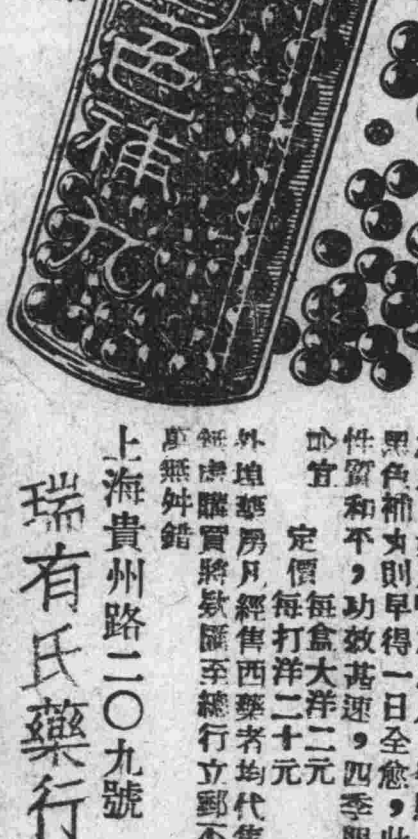 色補丸
黑色補丸則早得一日全愈，
性質和平，功效甚速，四季
宜
定價
每盒大洋二元
每打洋二十元
外埠藥房凡經售西藥者均代售
無處購買將款匯至總行立郵
萬無舛錯
上海貴州路二〇九號
瑞有氏藥行